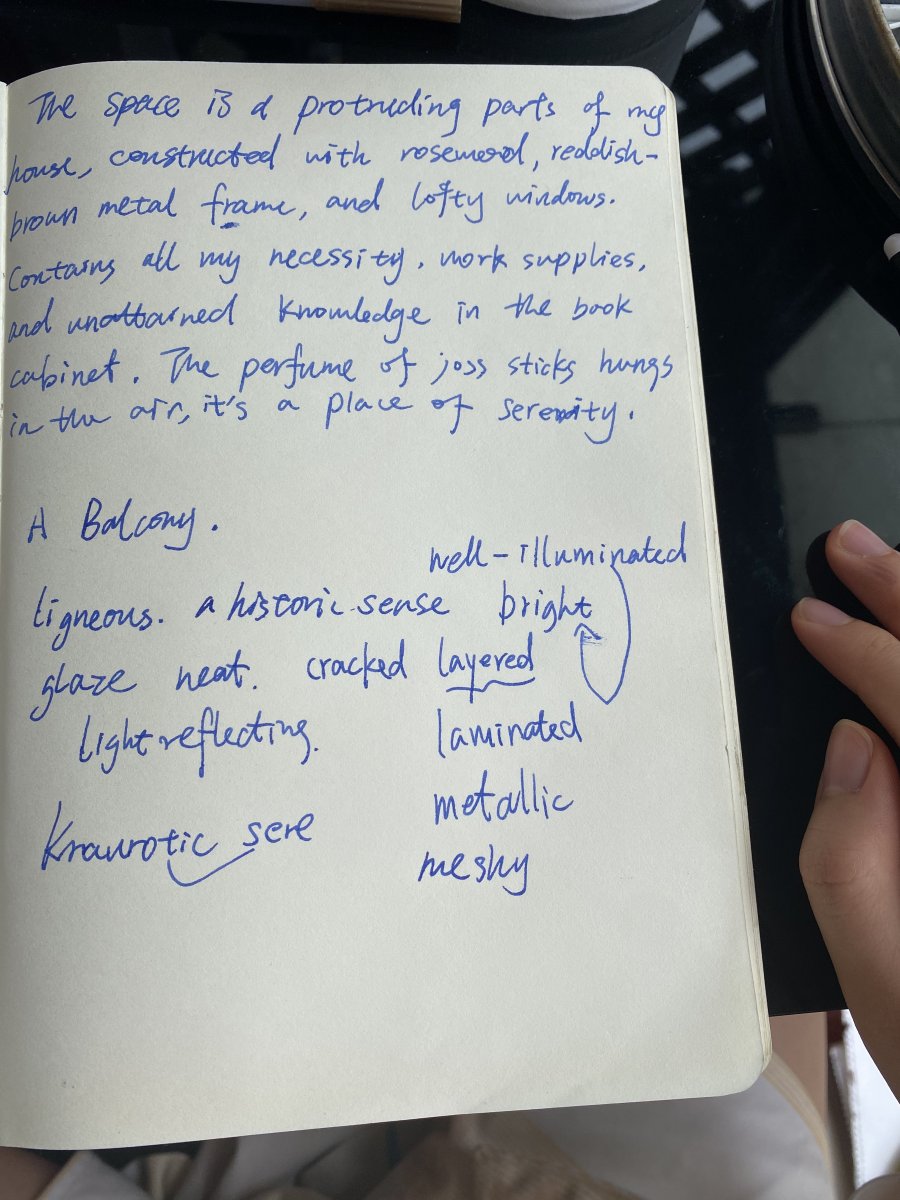 The space is a protruding parts of my
house, constructed with rosewood, reddish-
brown metal frame, and lofty windows.
Contains all my necessity, work supplies,
and unattained knowledge in the book
cabinet. The perfume of joss sticks hungs
in the air, it's a place of serenity.
A Balcony.
well-illuminated
ligneous. a historic sense bright
glaze neat. cracked layered
light reflecting. laminated
metallic
Kraurotic sere
meshy